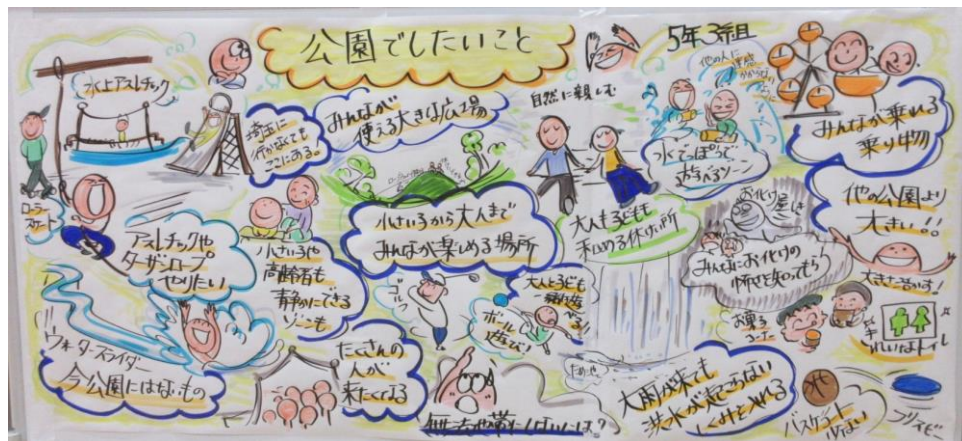 公園でしたいこと
5年3組
水上アスレチック
埼玉に
行かなくても
ここにある。
みんなが
使える大きな広場
自然に親しむ
他の人に
水でっぽうで
遊べるゾーン
みんなが乗れる
乗り物
ローラー
スケート
アスレチックや
ターザンロープ
やりたい
小さい子や
高齢者も
静かにできる
ゾーンも
小さい子から大人まで
みんなが楽しめる場所
大人も子どもも
楽しめる休けい所
お化け屋しき
みんなにお化けの
怖さを知ってもらう
他の公園より
大きい!!
大きさを活かす!
ウォータースライダー
今公園にはないもの
たくさんの
人が
来たくなる
ボール
遊び!
大人も子どもも
お菓子
コーナー
きれいなトイレ
大雨が来ても
洪水が起こらない
しくみを入れる
バスケット
フリスビー